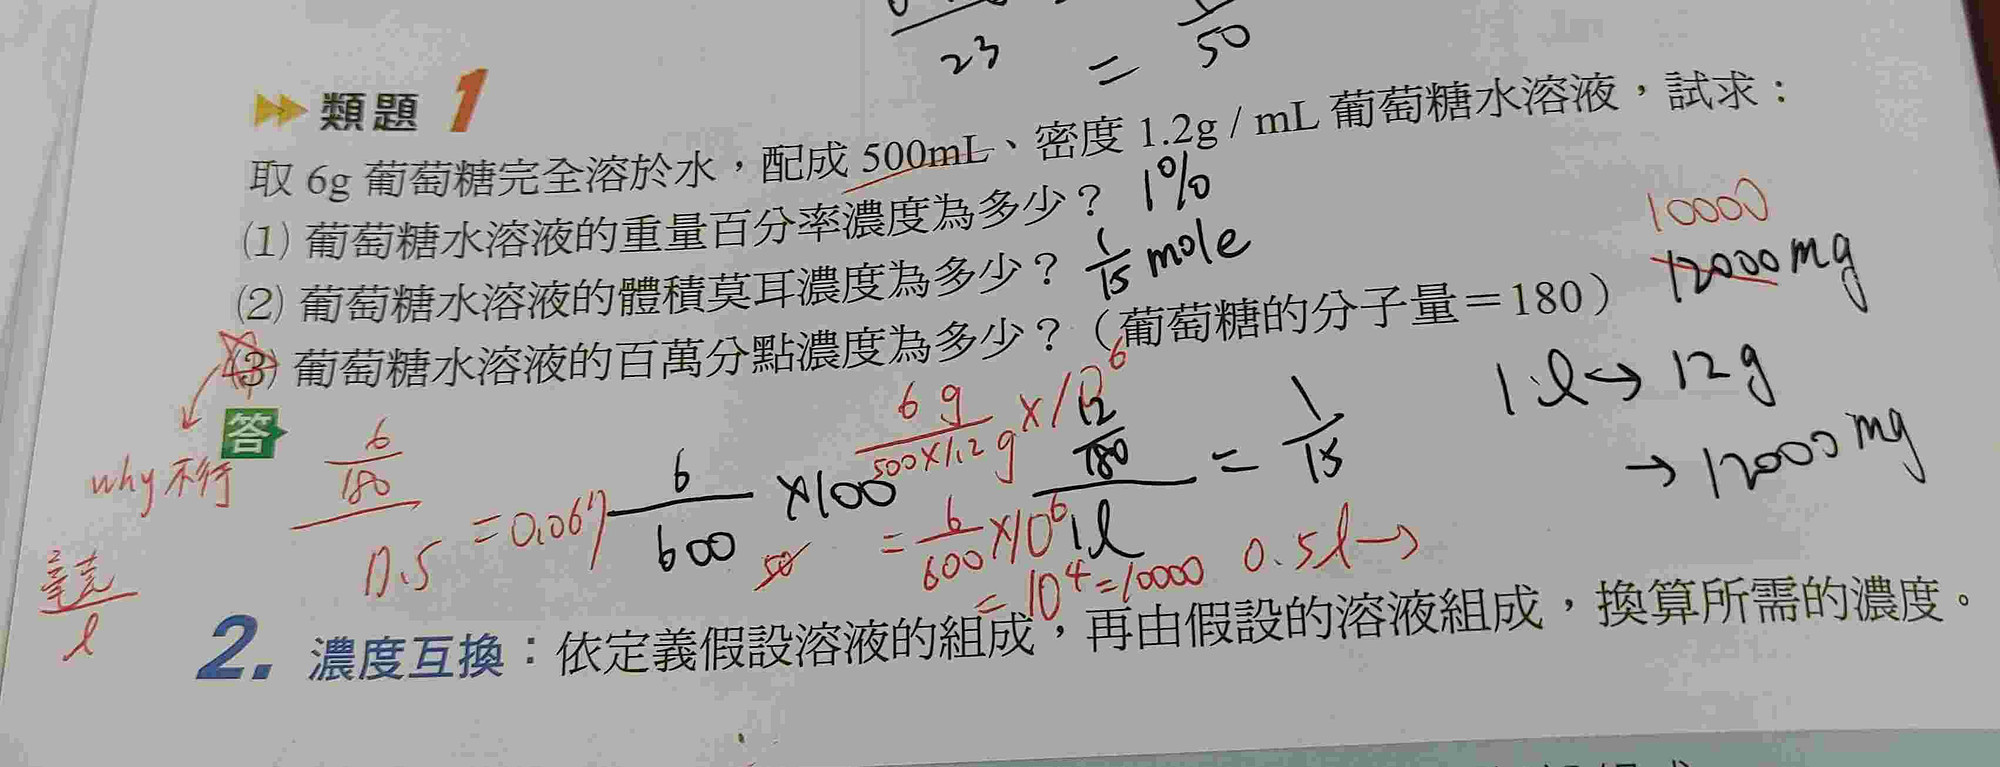 23
= 50
類題 1
取 6g 葡萄糖完全溶於水，配成 500mL、密度 1.2g / mL 葡萄糖水溶液，試求：
(1) 葡萄糖水溶液的重量百分率濃度為多少？ 1%
(2) 葡萄糖水溶液的體積莫耳濃度為多少？ 1/15 mole
(3) 葡萄糖水溶液的百萬分點濃度為多少？（葡萄糖的分子量＝180）
10000
12000 mg
1l ↔ 12g
→ 12000 mg
答
why 不行
毫克/l
6/180 / 0.5 = 0.067
6/600 ×100
50
6g / 500×1.2g ×10⁶
= 6/600 ×10⁶
= 10⁴ = 10000
12/180 / 1l = 1/15
0.5l →
2. 濃度互換：依定義假設溶液的組成，再由假設的溶液組成，換算所需的濃度。